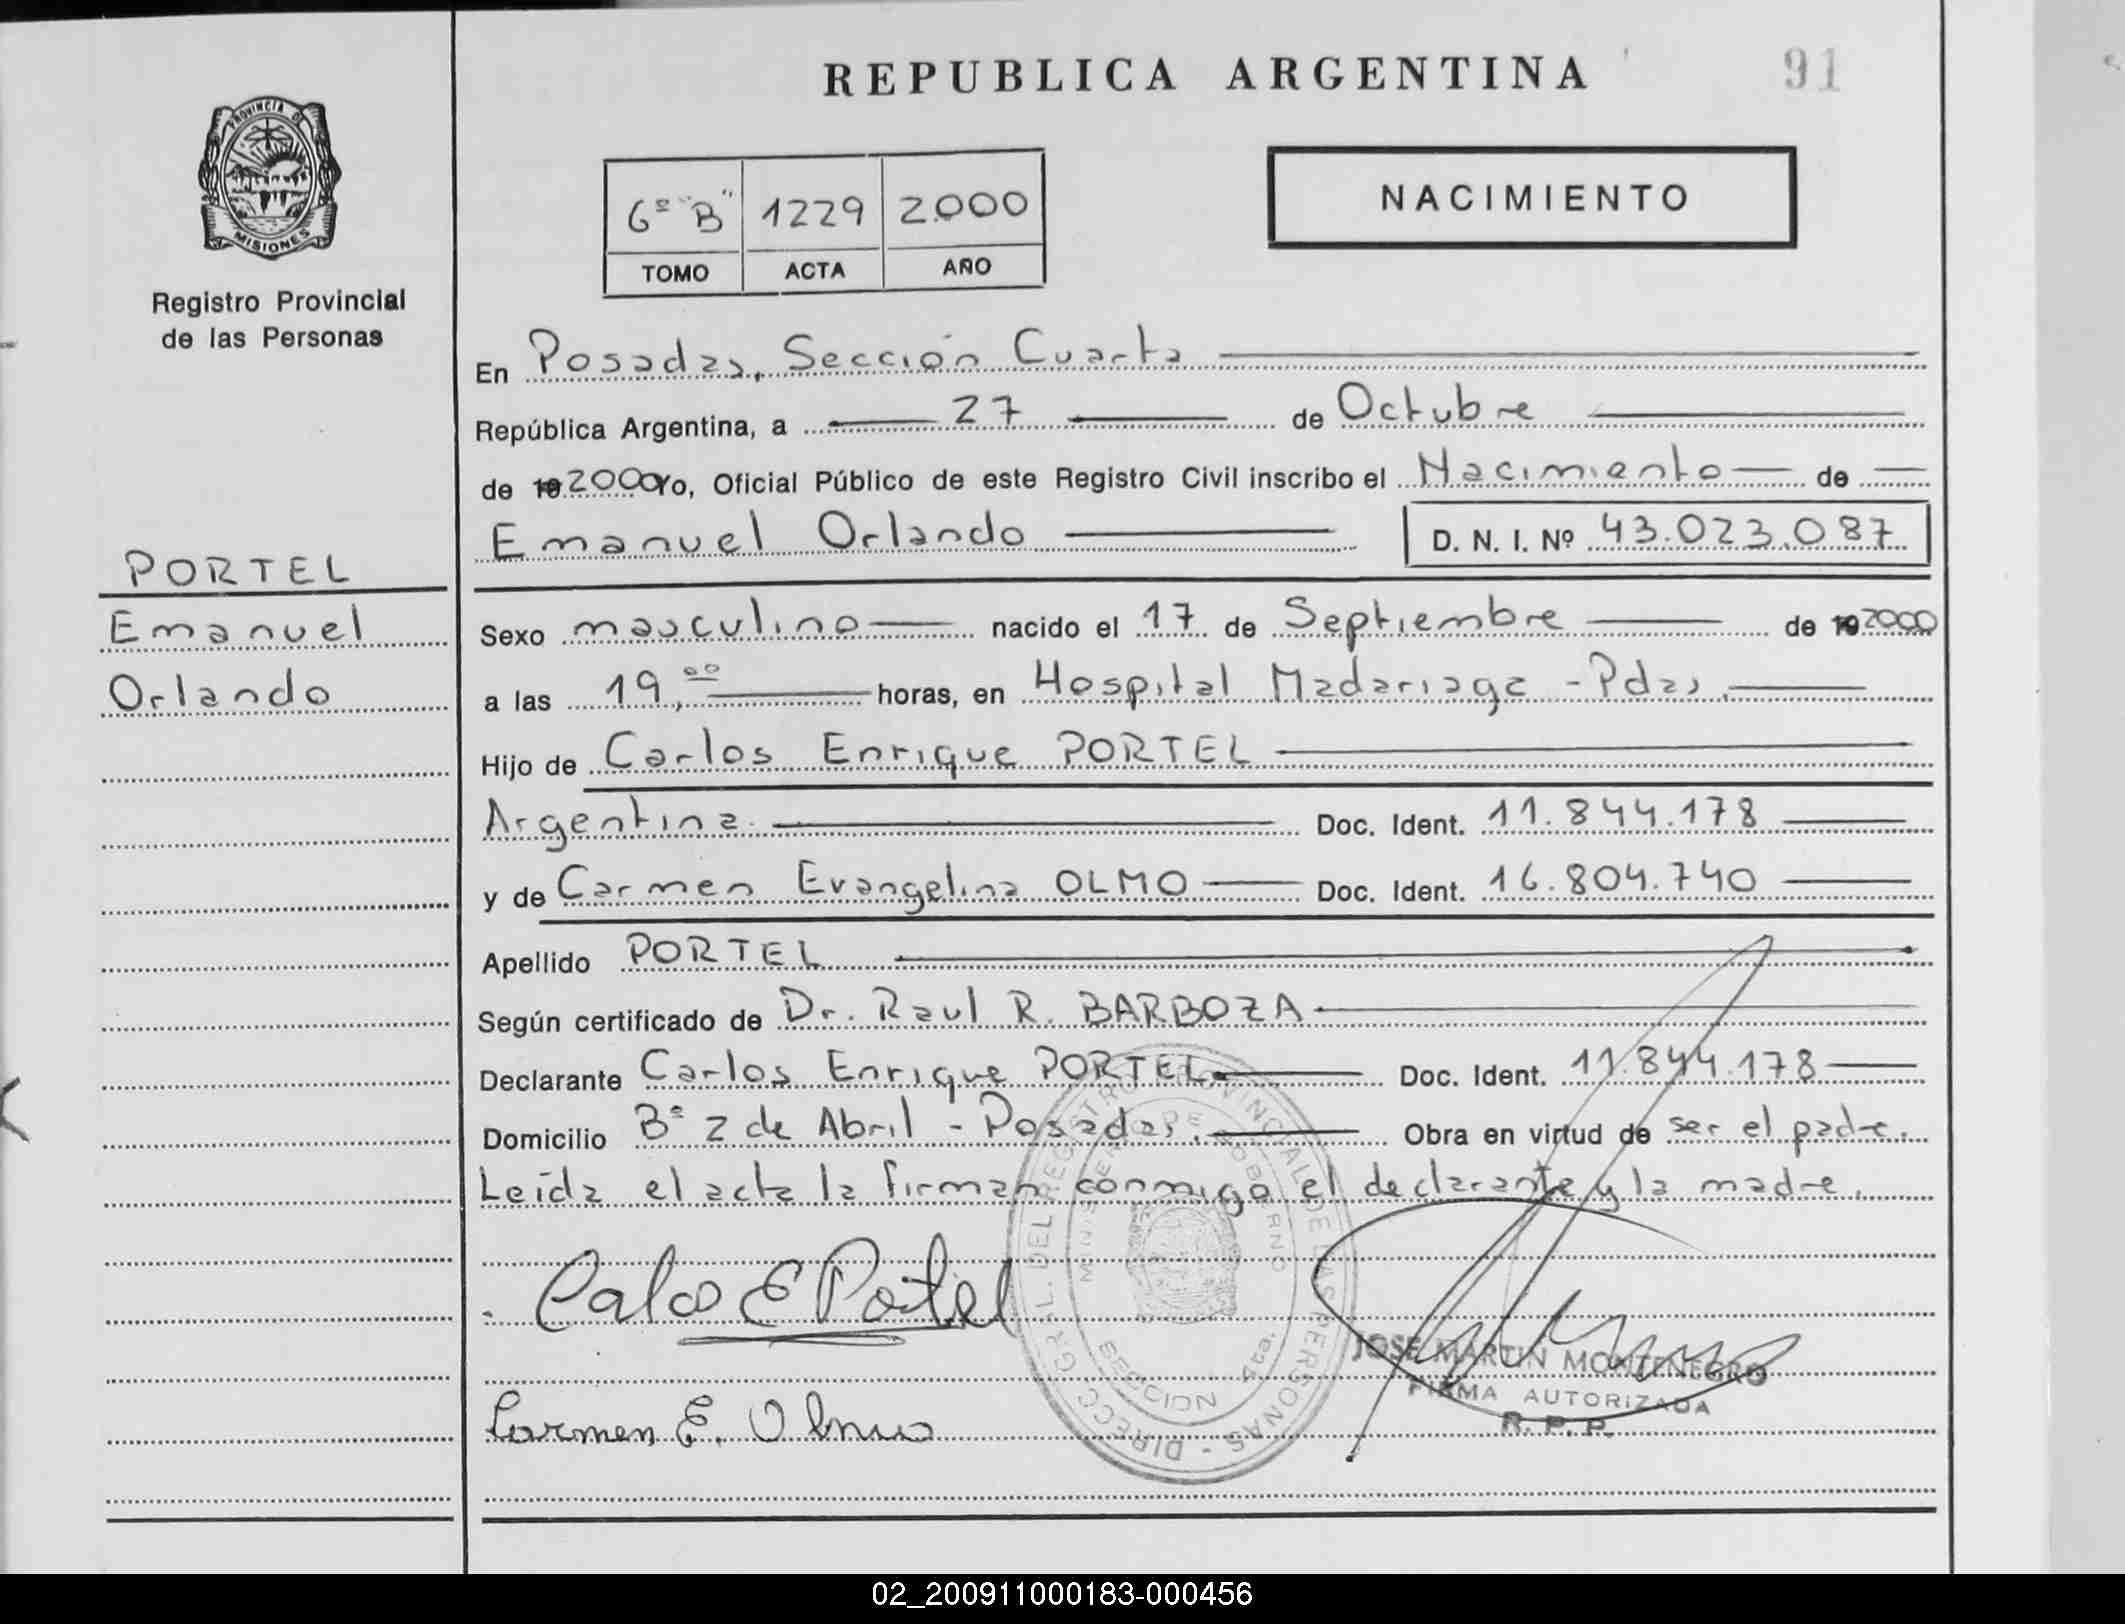 REPUBLICA ARGENTINA
91
PROVINCIA DE
MISIONES
Registro Provincial
de las Personas
6º "B" 1229 2000
TOMO ACTA AÑO
NACIMIENTO
En Posadas, Sección Cuarta
República Argentina, a 27 de Octubre
de 19 2000 Yo, Oficial Público de este Registro Civil inscribo el Nacimiento de
Emanuel Orlando D. N. I. Nº 43.023.087
PORTEL
Emanuel
Orlando
Sexo masculino nacido el 17 de Septiembre de 19 2000
a las 19,00 horas, en Hospital Madariaga - Pdas.
Hijo de Carlos Enrique PORTEL
Argentina Doc. Ident. 11.844.178
y de Carmen Evangelina OLMO Doc. Ident. 16.804.740
Apellido PORTEL
Según certificado de Dr. Raul R. BARBOZA
Declarante Carlos Enrique PORTEL Doc. Ident. 11.844.178
Domicilio Bº 2 de Abril - Posadas. Obra en virtud de ser el padre.
Leída el acta la firman conmigo el declarante y la madre.
Calos E Portel
Carmen E. Olmo
DIRECC. GRAL. DEL REGISTRO PROVINCIAL DE LAS PERSONAS -
MINISTERIO DE GOBIERNO
SECCION 4ta.
JOSE MARTIN MONTENEGRO
FIRMA AUTORIZADA
R. P. P.
02_200911000183-000456